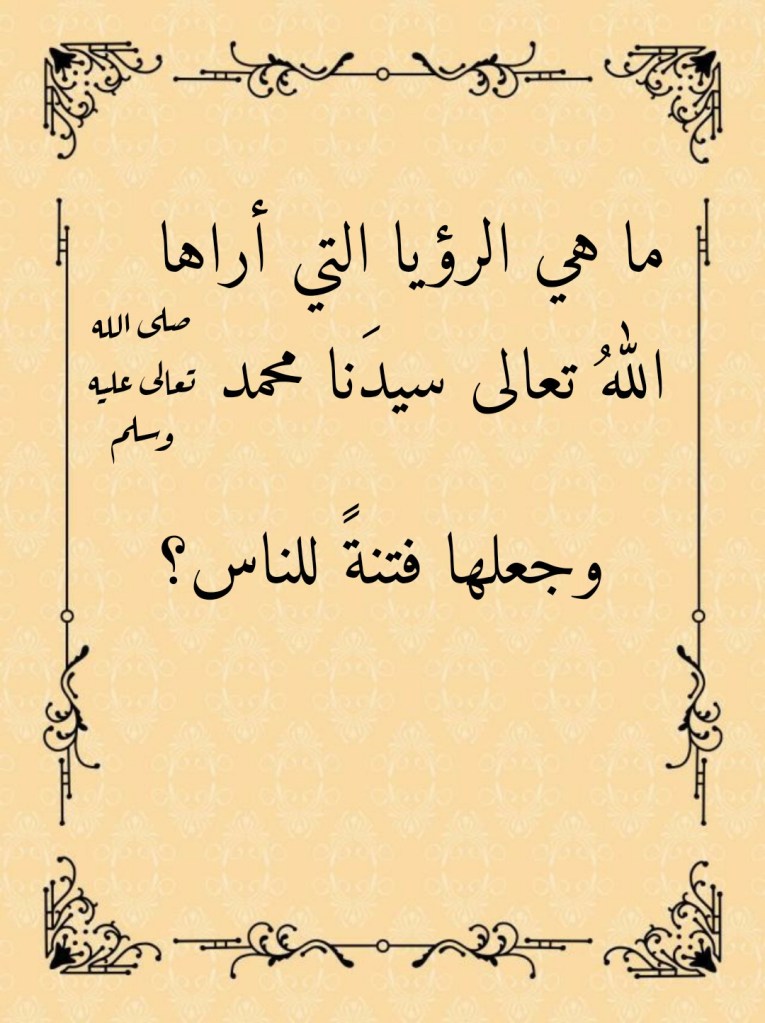 ما هي الرؤيا التي أراها
اللهُ تعالى سيدَنا محمد صلى الله تعالى عليه وسلم
وجعلها فتنةً للناس؟